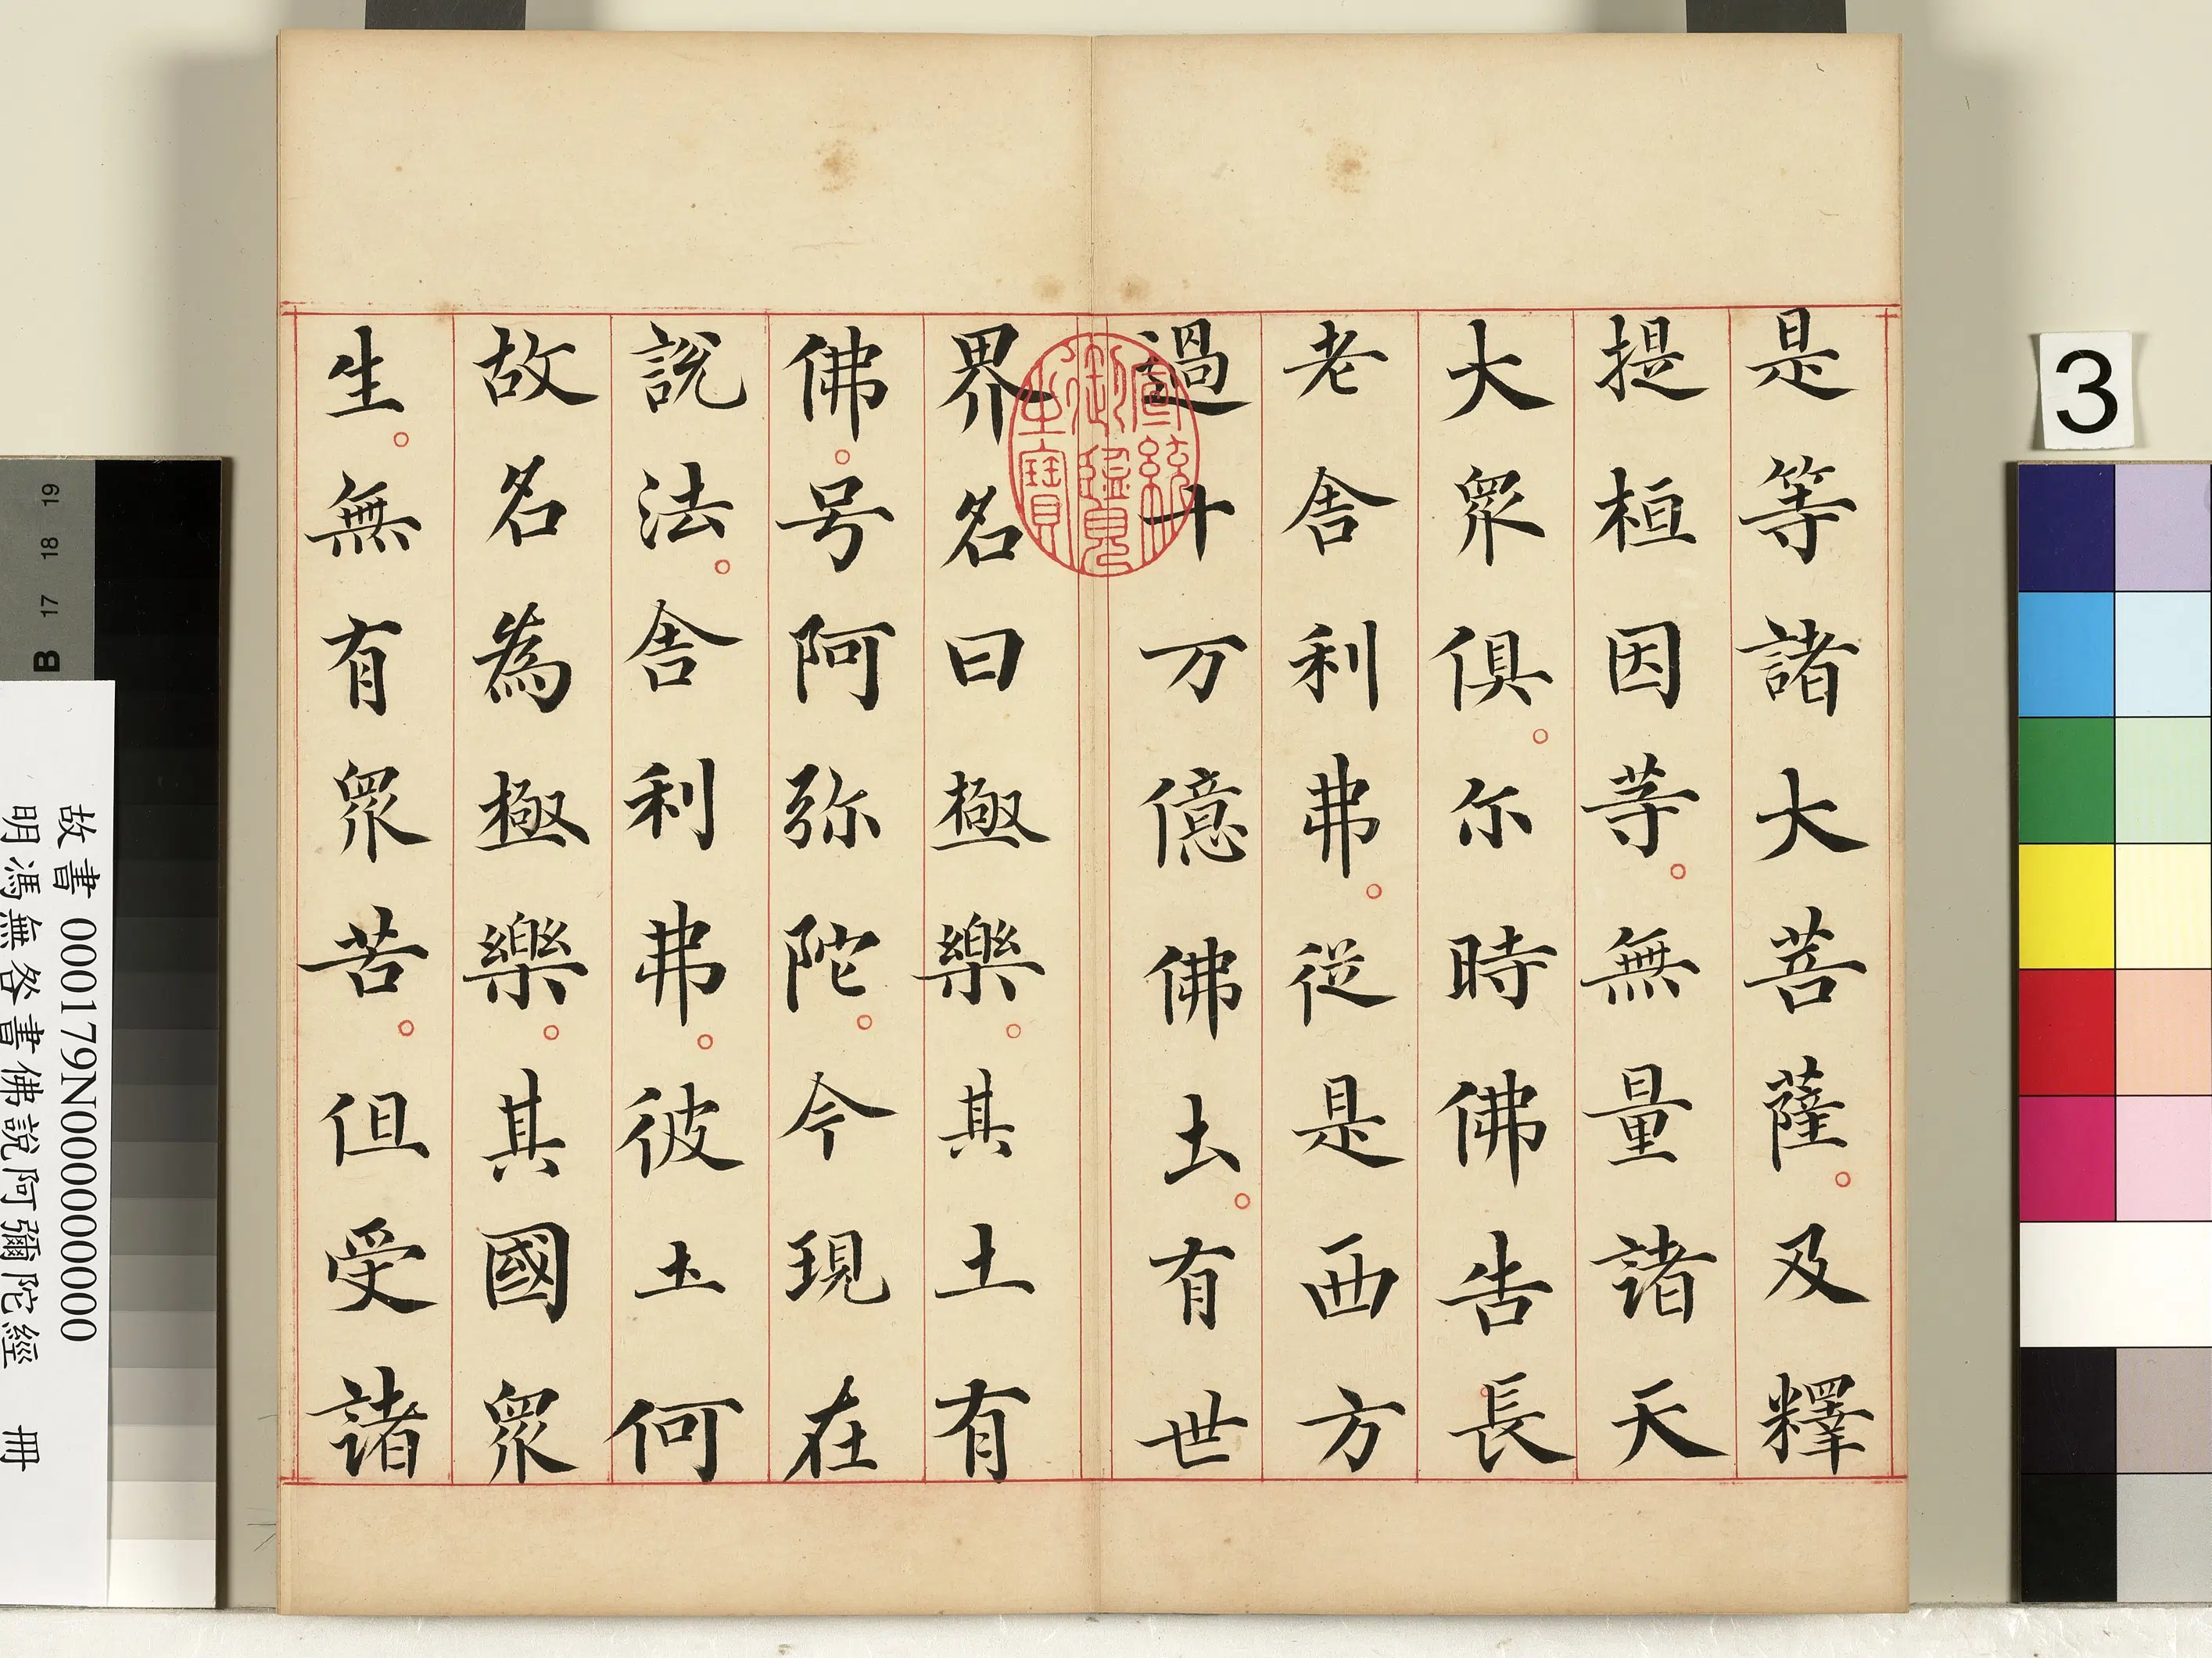 是等諸大菩薩。及釋
提桓因等。無量諸天
大眾俱。尔時佛告長
老舍利弗。從是西方
過十万億佛土。有世
界名曰極樂。其土有
佛。号阿弥陀。今現在
說法。舍利弗。彼土何
故名為極樂。其國眾
生。無有眾苦。但受諸
宣統御覽之寶
3
故書 000179N000000000
明馮無咎書佛說阿彌陀經 冊
B 17 18 19